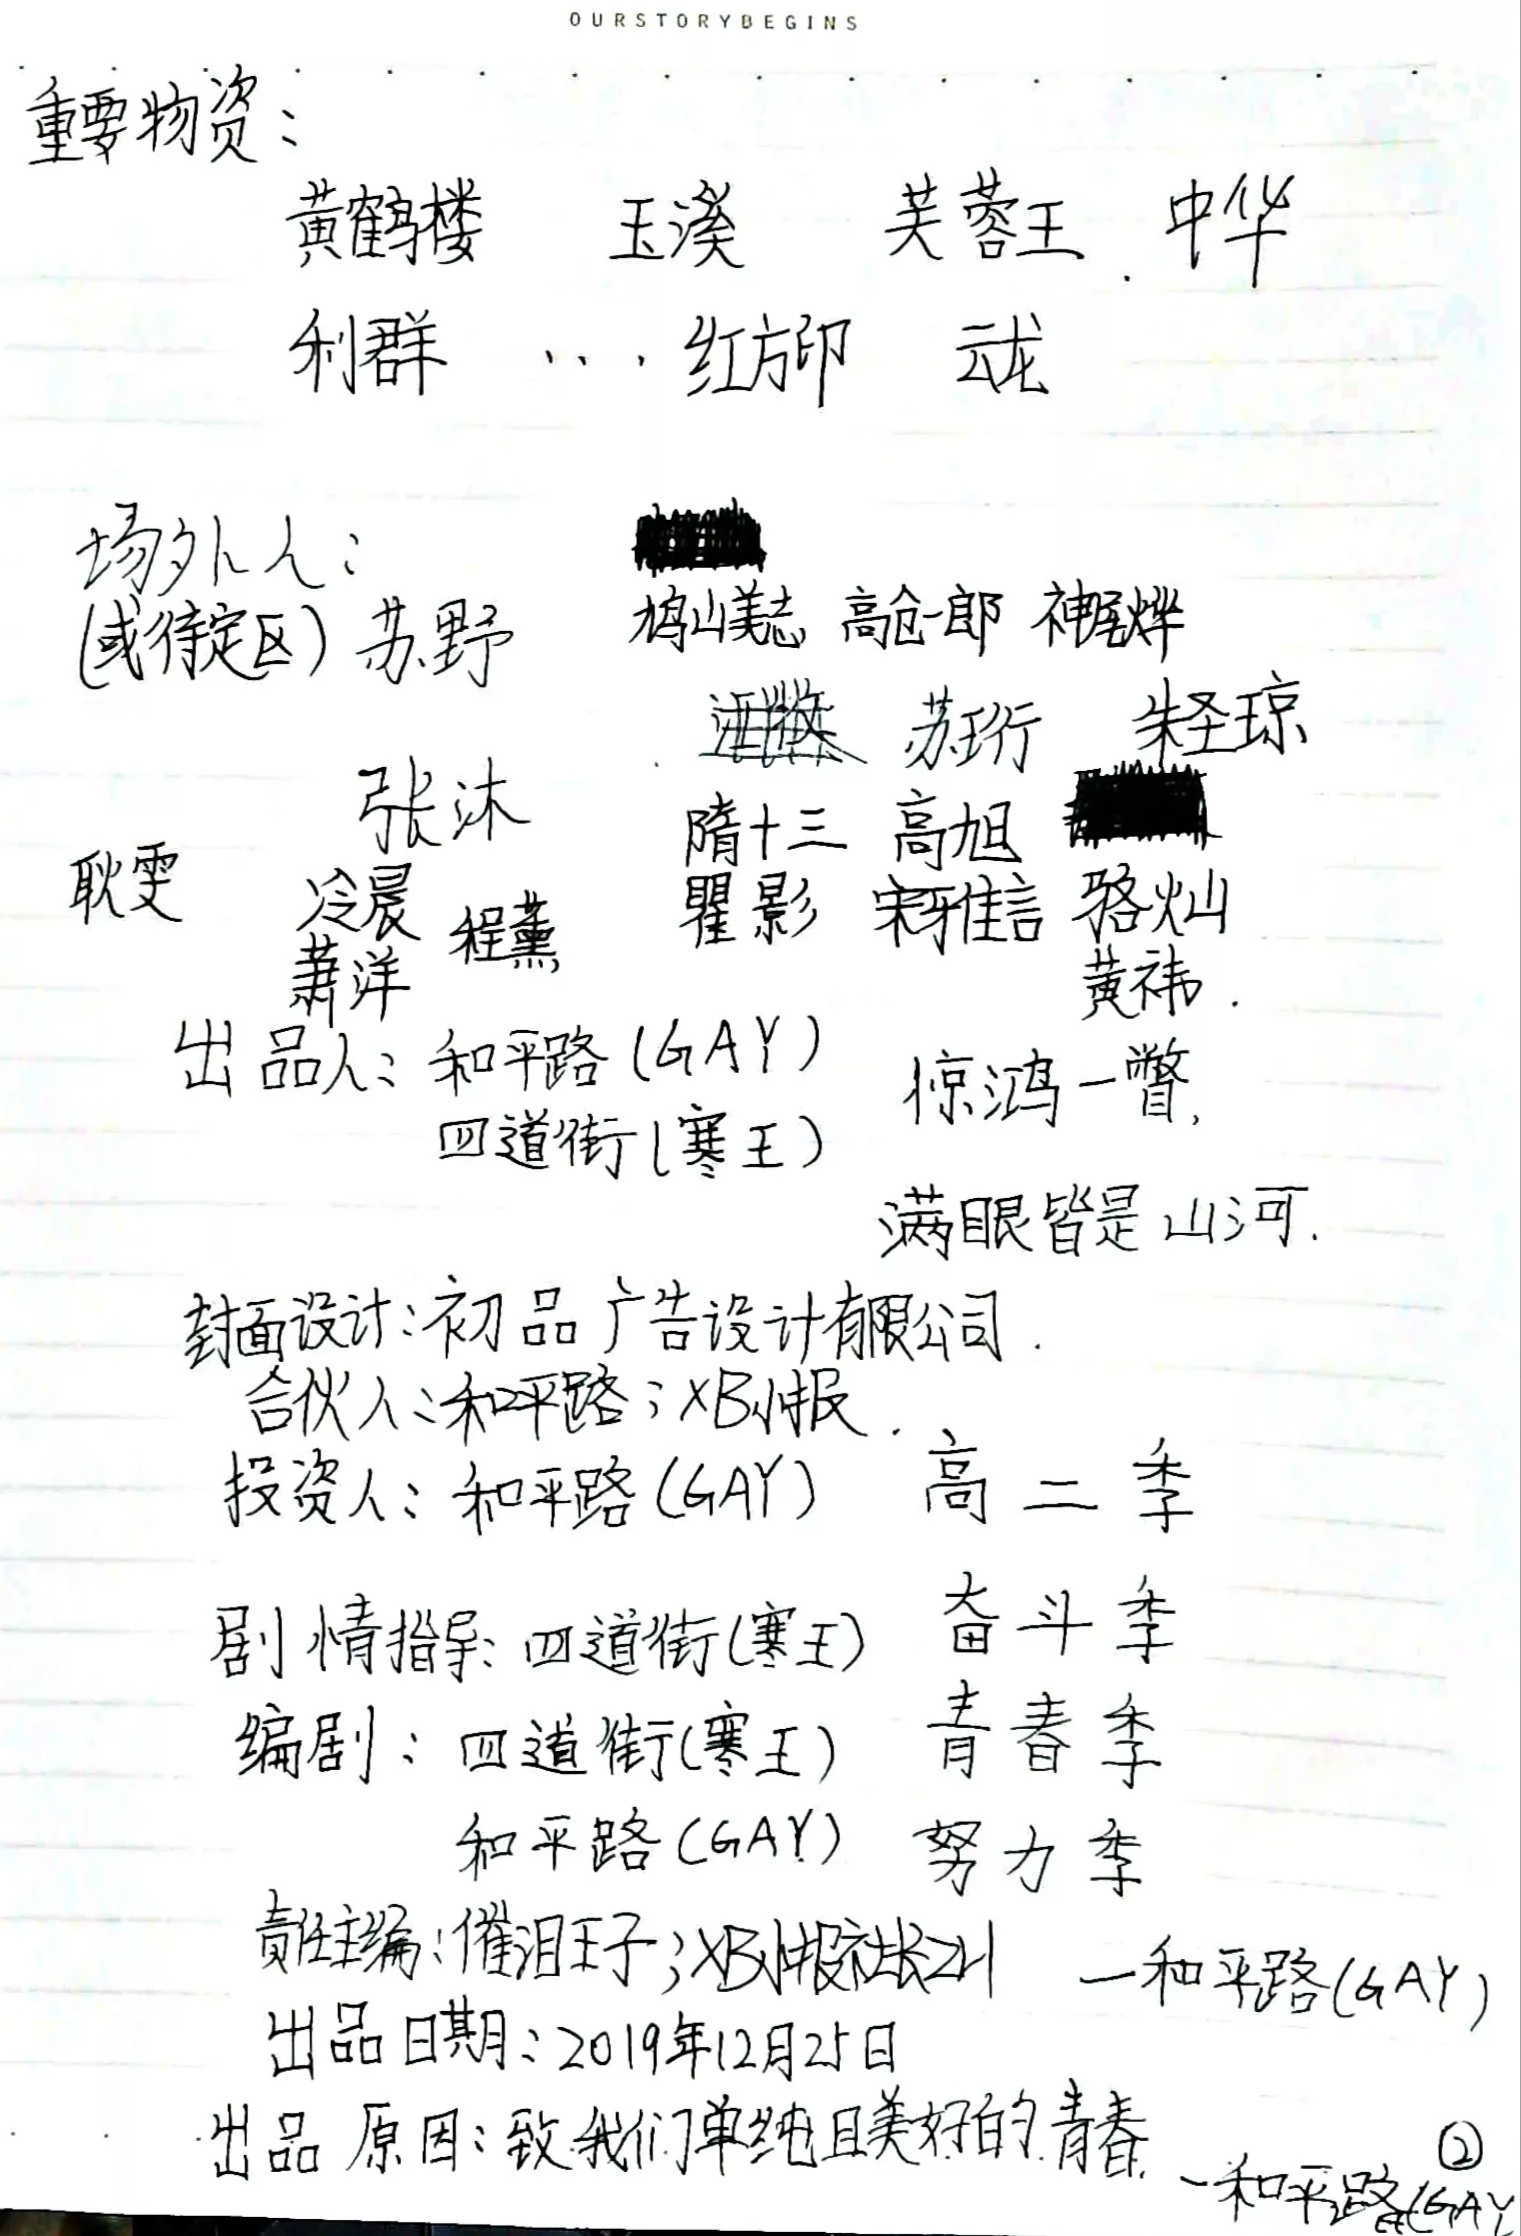 OURSTORYBEGINS
重要物资：
黄鹤楼 玉溪 芙蓉王 中华
利群 ... 红方印 云龙
场外人：
(或待定区) 苏野 鸠山美志 高仓一郎 神尾烨
苏珩 朱圣琼
张沐 隋十三 高旭
耿雯 冷晨 程薰 瞿影 宋雅言 骆灿
萧洋 黄祎.
出品人：和平路(GAY) 惊鸿一瞥,
四道街(寒王)
满眼皆是山河.
封面设计：初品广告设计有限公司.
合伙人：和平路；XB小报.
投资人：和平路(GAY) 高二季
剧情指导：四道街(寒王) 奋斗季
编剧：四道街(寒王) 青春季
和平路(GAY) 努力季
责任主编：催泪王子；XB小报社长ZH 一和平路(GAY)
出品日期：2019年12月25日
出品原因：致我们单纯且美好的青春.
一和平路(GAY
②